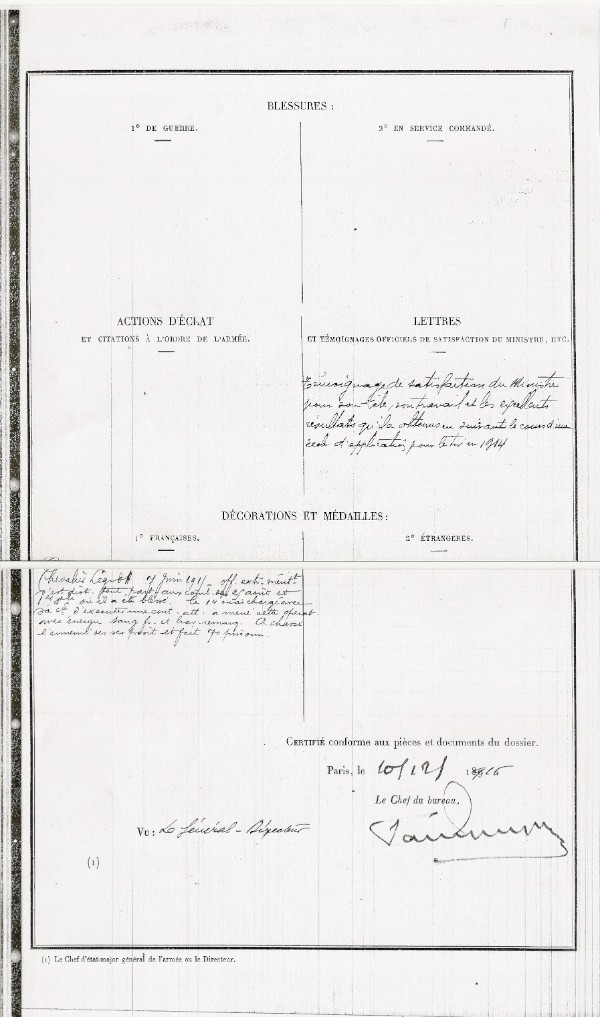 BLESSURES :
1° DE GUERRE.
2° EN SERVICE COMMANDÉ.
ACTIONS D'ÉCLAT
ET CITATIONS À L'ORDRE DE L'ARMÉE.
LETTRES
ET TÉMOIGNAGES OFFICIELS DE SATISFACTION DU MINISTRE, ETC.
Témoignage de satisfaction du Ministre
pour son zèle, son travail et les excellents
résultats qu'il a obtenus en suivant le cours d'une
école d'application pour le tir en 1914
DÉCORATIONS ET MÉDAILLES :
1° FRANÇAISES.
2° ÉTRANGÈRES.
Chevalier Lég. 7 Juin 1915 off. ext. mérit
s'est dist. part. aux 25 août et
où il a été blessé. le 14 mai chargé avec
sa Cie d'exécuter une cont. att. a mené cette opérat
avec énergie sang fr. et brav. remarq. A chassé
l'ennemi et fait 70 prisonn.
CERTIFIÉ conforme aux pièces et documents du dossier.
Paris, le 10/12/ 1916
Le Chef du bureau,
Vu : Le Général - Directeur
(1)
(1) Le Chef d'état-major général de l'armée ou le Directeur.